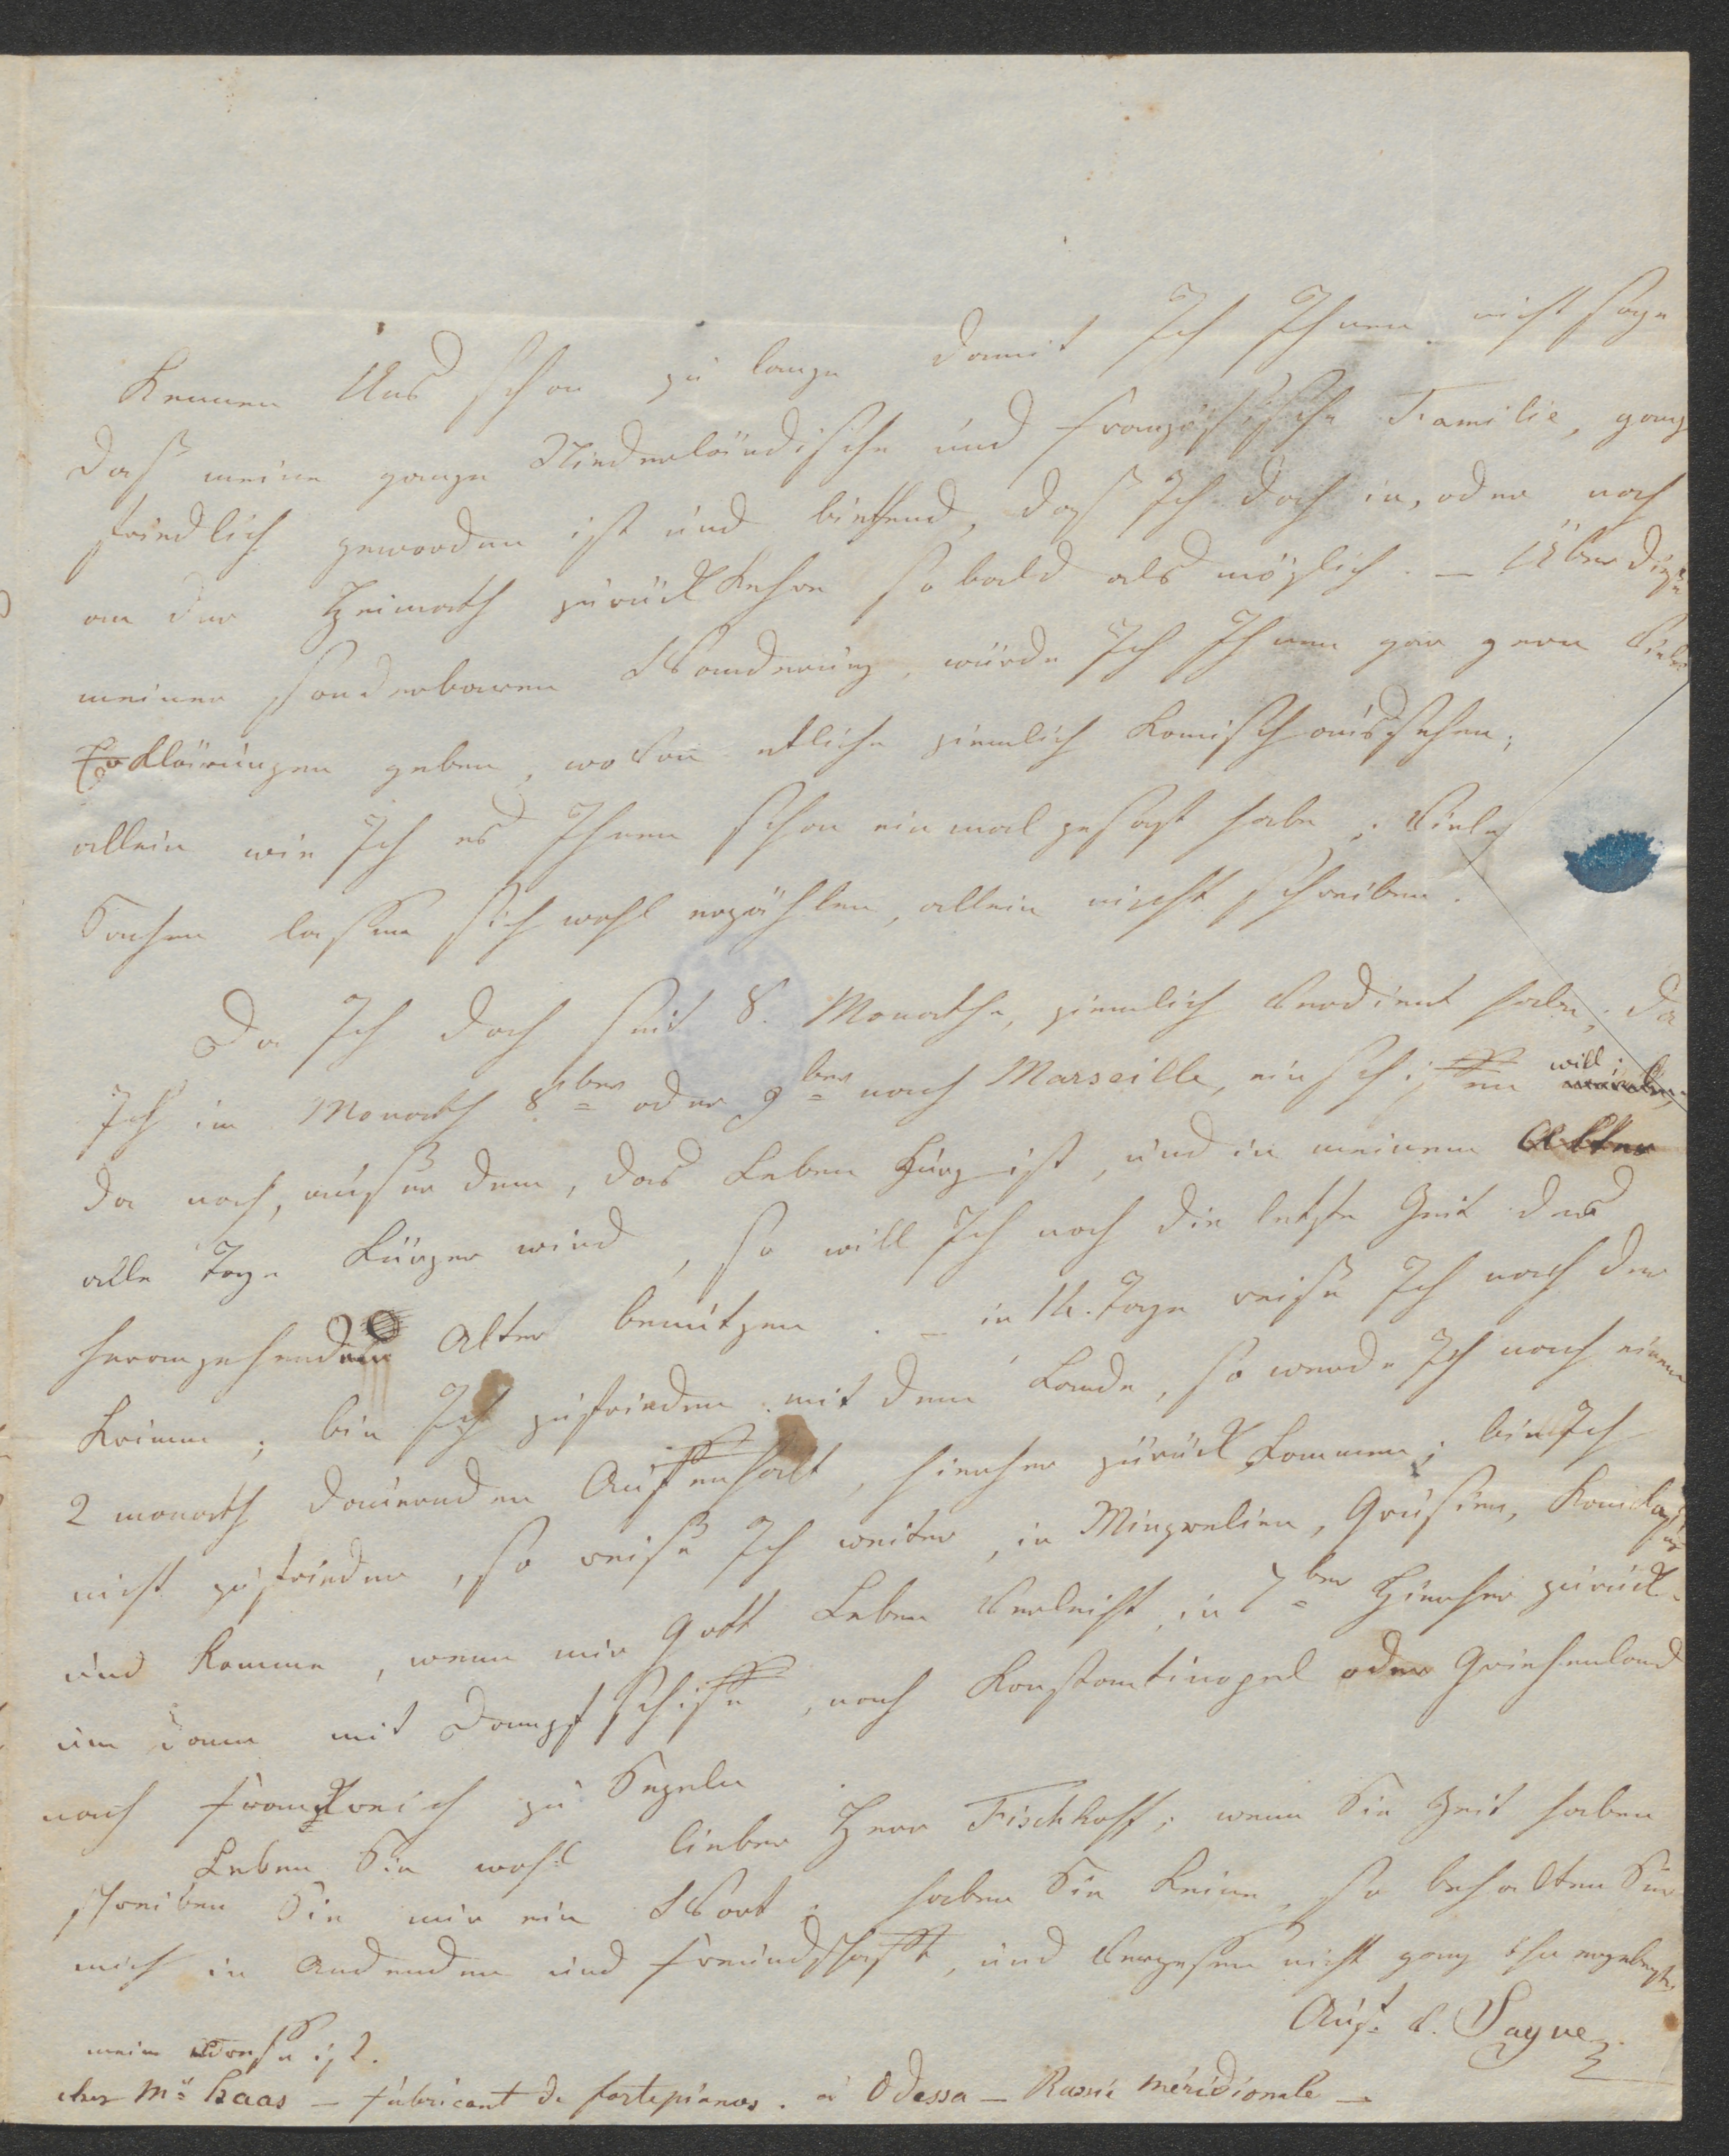 Kennen Uns schon zu lange damit Ich Ihnen nicht sage
daß meine ganze Niederländische und französische Familie, ganz
friedlich geworden ist und bittend, daß Ich doch in, oder nach
an der Heimath zurück kehre so bald als möglich. — Über diese
meiner sonderbaren Wanderung, würde Ich Ihnen gar gern Viele
Erklärungen geben, wo von etliche ziemlich komisch aussehen;
allein wie Ich es Ihnen schon ein mal gesagt habe; Viele
Sachen laßen sich wohl erzählen, allein nicht schreiben.
Da Ich doch seit 8. Monathe, ziemlich Verdient habe; da
Ich im Monath 8ber oder 9ber nach Marseille, ein schiffen will;
da noch, außer dem, das Leben kurz ist, und in meinem Alter
alle Tage kürzer wird, so will Ich noch die letzte Zeit des
herangehenden Alter benützen. — in 14. Tage reise Ich nach der
Krimm; bin Ich zufrieden mit dem Lande, so werde Ich nach einem
2 monath dauernden Aufenhalt, hierher zurück kommen; bin Ich
nicht zufrieden, so reise Ich weiter, in Mingrelien, Grusien,
und komme, wenn mir Gott Leben Verleiht, in 7ber Hierher zurück.
um dann mit Dampfschiffe, nach Konstantinopel oder Griechenland
nach Frankreich zu Segeln.
Leben Sie wohl lieber Herr Fischhoff; wenn Sie Zeit haben
schreiben Sie mir ein Wort; haben Sie keine, so behalten Sie
mich in Andenken und Freundschafft, und Vergeßen nicht ganz Ihr ergebenster
Augt. d. Sayve
mein Adreße ist.
chez Mr. Haas — fabricant de fortepianos. à Odessa — Russie méridionale —